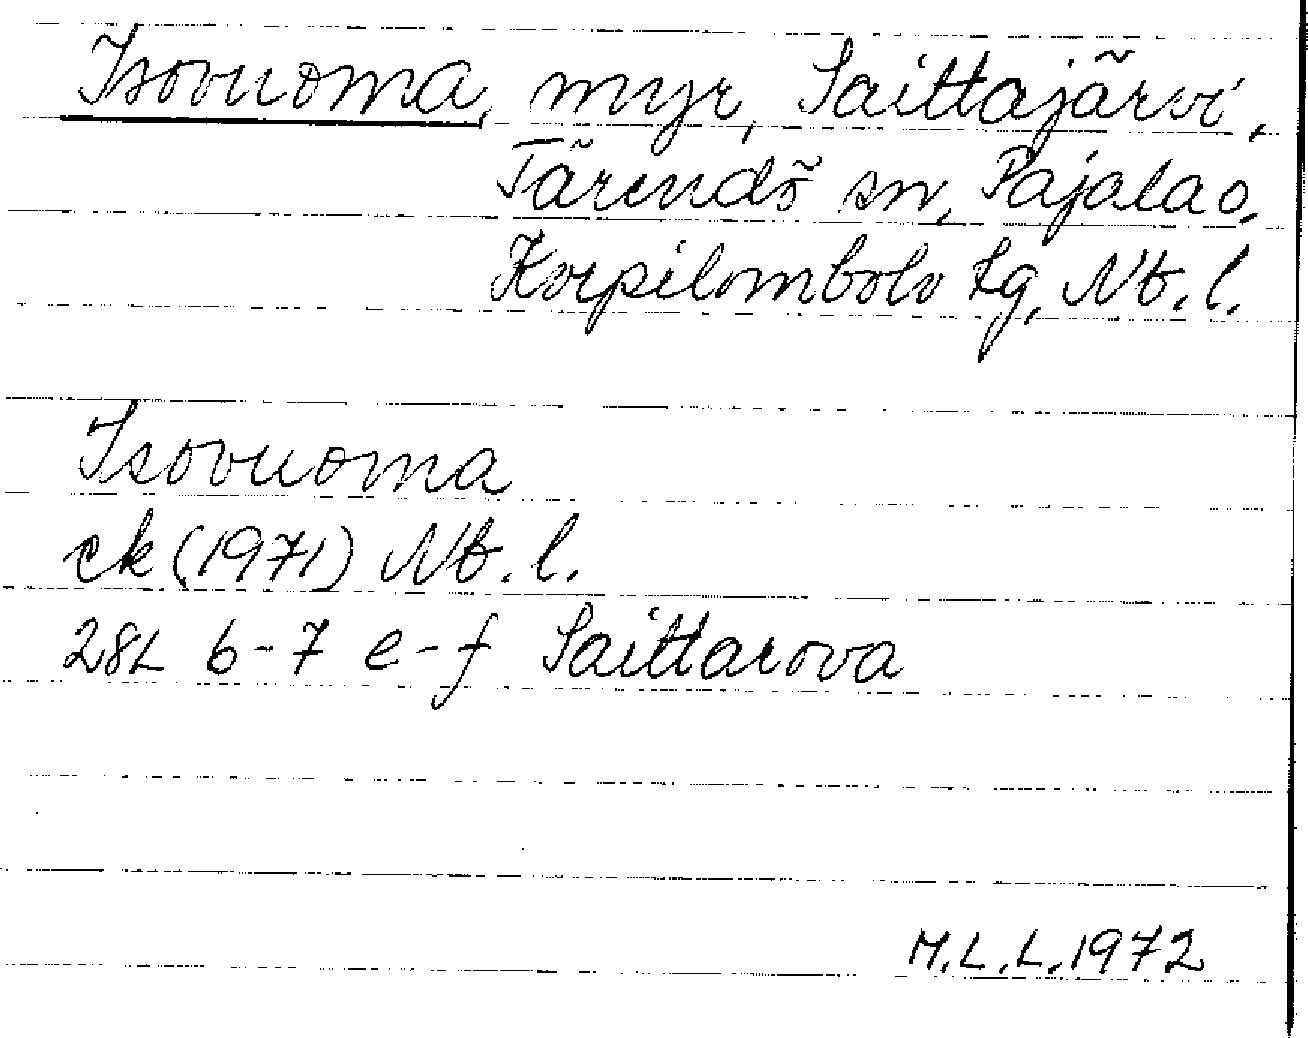 Isovuoma, myr, Saittajärvi,
Tärendö sn, Pajala o,
Korpilombolo tg, Nb. l.
Isovuoma
ek (1971) Nb. l.
28L 6-7 e-f Saittarova
M.L.L. 1972